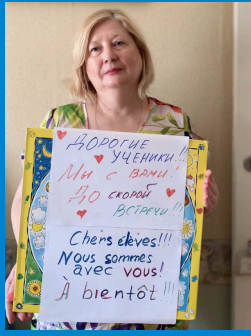 Дорогие
ученики!!!
Мы с вами!
До скорой
встречи!!!
Chers élèves!!!
Nous sommes
avec vous!
À bientôt!!!